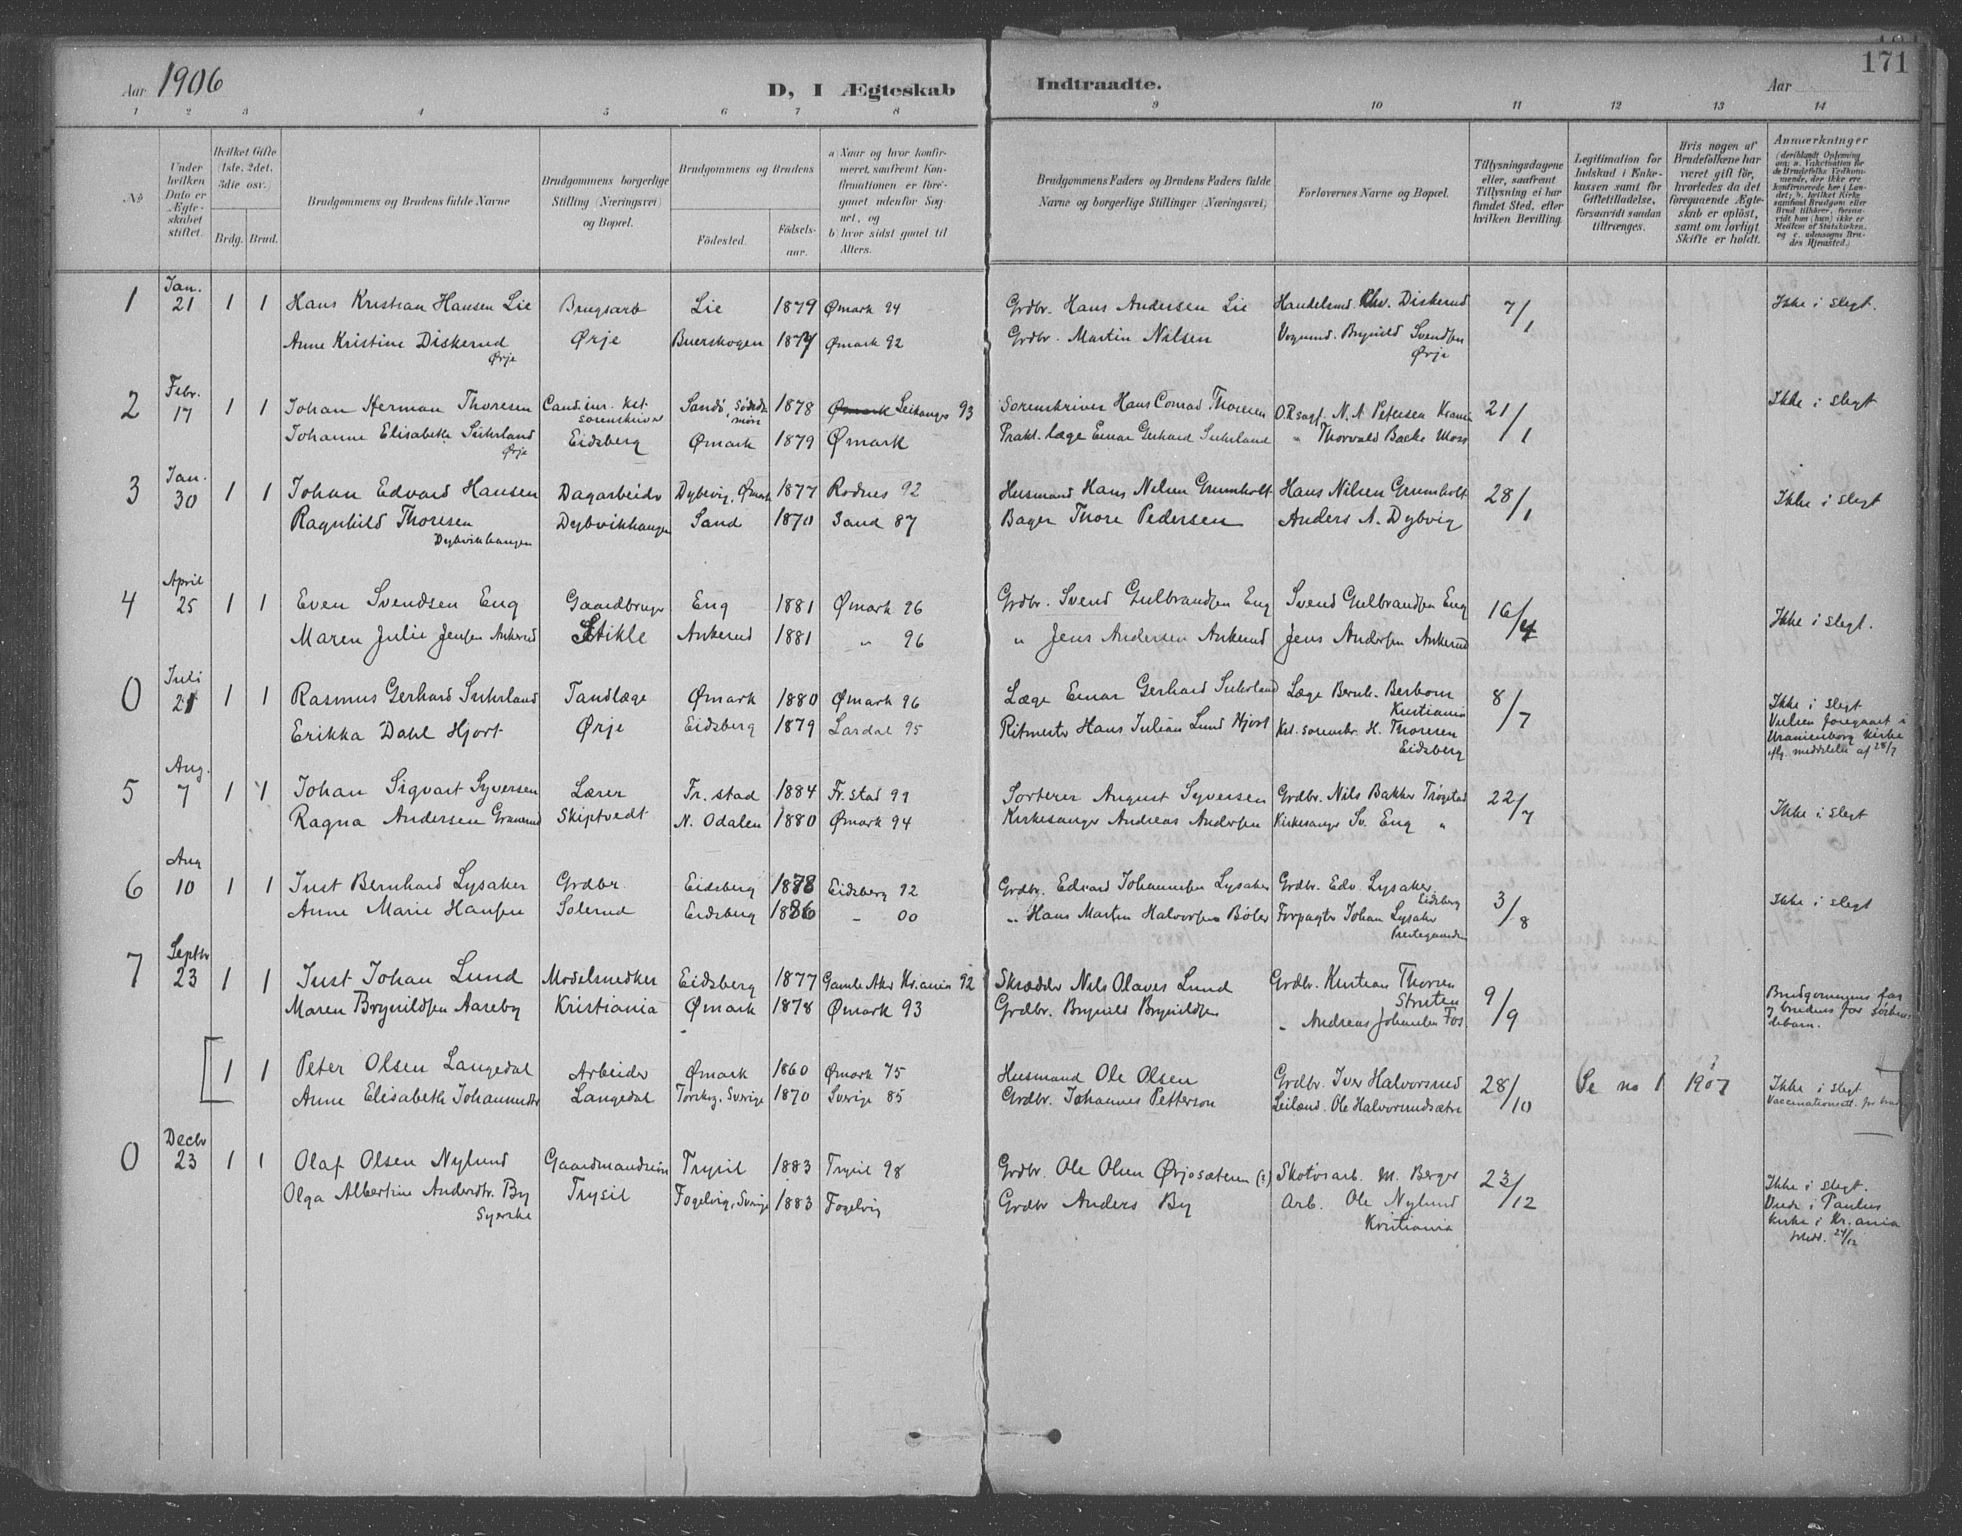 171
Aar 1906
D, I Ægteskab Indtraadte.
Aar
1 2 3 4 5 6 7 8 9 10 11 12 13 14
№
Under hvilken Dato er Ægteskabet stiftet.
Hvilket Gifte (1ste, 2det, 3die osv.)
Brdg. Brud.
Brudgommens og Brudens fulde Navne
Brudgommens borgerlige Stilling (Næringsvei) og Bopæl.
Brudgommens og Brudens
Födested.
Födselsaar.
a) Naar og hvor konfirmeret, saafremt Konfirmationen er foregaaet udenför Sognet, og
b) hvor sidst gaaet til Alters.
Brudgommens Faders og Brudens Faders fulde Navne og borgerlige Stillinger (Næringsvei)
Forlovernes Navne og Bopæl.
Tillysningsdagene eller, saafremt Tillysning ei har fundet Sted, efter hvilken Bevilling.
Legitimation for Indskud i Enkekassen samt for Giftetilladelse, forsaavidt saadan tiltrænges.
Hvis nogen af Brudefolkene har været gift för, hvorledes da det foregaaende Ægteskab er oplöst, samt om lovligt Skifte er holdt.
Anmerkninger
1 Jan. 21 1 1 Hans Kristian Hansen Lie Brugsarb Lie 1879 Ømark 94 Grdbr. Hans Andersen Lie Handelsmd. Chr. Diskerud 7/1 Ikke i slegt.
Anne Kristine Diskerud Ørje Ørje Buerskogen 1877 Ømark 92 Grdbr. Martin Nilsen Vognmd. Brynild Svendsen Ørje
2 Febr. 17 1 1 Johan Herman Thoresen Cand. jur. kst. sorenskriver Sandö, Söndmör 1878 Ømark Leikanger 93 Sorenskriver Hans Conrad Thoresen O.R.sagf. N. A. Petersen Krania 21/1 Ikke i slegt
Johanne Elisabeth Suhrland Ørje Eidsberg Ømark 1879 Ømark Prakt. læge Einar Gerhard Suhrland " Thorvald Backe Moss
3 Jan. 30 1 1 Johan Edvard Hansen Dagarbeider Dybvig, Ømark 1877 Rödnes 92 Husmand Hans Nilsen Grumholt Hans Nilsen Grumholt 28/1 Ikke i slegt
Ragnhild Thoresen Dybvikhaugen Dybvikhaugen Sand 1870 Sand 87 Bager Thore Pedersen Anders A. Dybvig
4 April 25 1 1 Even Svendsen Eng Gaardbruger Eng 1881 Ømark 96 Grdbr. Svend Gulbrandsen Eng Svend Gulbrandsen Eng 16/4 Ikke i slegt.
Maren Julie Jensen Ankerud Stikle Ankerud 1881 " 96 " Jens Andersen Ankerud Jens Andersen Ankerud
0 Juli 21 1 1 Rasmus Gerhard Suhrland Tandlæge Ømark 1880 Ømark 96 Læge Einar Gerhard Suhrland Læge Bernh. Berbom Kristiania 8/7 Ikke i slegt
Erikka Dahl Hjort Ørje Eidsberg 1879 Lardal 95 Ritmester Hans Julian Lund Hjort Kst. sorenskr. H. Thoresen Eidsberg Vielsen foregaaet i Uranienborg kirke iflg. meddelse af 28/7
5 Aug. 7 1 1 Johan Sigvart Syversen Lærer Fr.stad 1884 Fr.stad 99 Sorterer August Syversen Grdbr. Nils Bakker Trögstad 22/7 Ikke i slegt
Ragna Andersen Granerud Skiptvedt N. Odalen 1880 Ømark 94 Kirkesanger Andreas Andersen Kirkesanger Sv. Eng "
6 Aug 10 1 1 Just Bernhard Lysaker Grdbr Eidsberg 1878 Eidsberg 92 Grdbr. Edvard Johannesen Lysaker Grdbr. Edv. Lysaker Eidsberg 3/8 Ikke i slegt
Anne Marie Hansen Solerud Eidsberg 1886 " 00 " Hans Martin Halvorsen Böler Forpagter Johan Lysaker Prestegaarden
7 Septbr 23 1 1 Just Johan Lund Modelsnedker Eidsberg 1877 Gamle Aker Kr.ania 92 Skrædder Nils Olaves Lund Grdbr. Kristian Thoresen Struten 9/9 Brudgommens far og brudens far söskendebarn.
Maren Brynildsen Aareby Kristiania Ømark 1878 Ømark 93 Grdbr. Brynild Brynildsen " Andreas Johansen Fos
1 1 Peter Olsen Langedal Arbeider Ømark 1860 Ømark 75 Husmand Ole Olsen Grdbr. Iver Halvorsrud 28/10 Se no 1 1907 Ikke i slegt
Anne Elisabeth Johannesdtr Langedal Torskog, Sverige 1870 Sverige 85 Grdbr. Johannes Petterson Leilænd. Ole Halvorsrudsæter Vaccinationsatt. for brud
0 Decbr 23 1 1 Olaf Olsen Nylund Gaardmandssön Trysil 1883 Trysil 98 Grdbr. Ole Olsen Ørjesæteren (?) Skotöiarb. M. Berger 23/12 Ikke i slegt.
Olga Albertine Andersdtr. By Syerske Trysil Fogelvig, Sverige 1883 Fogelvig Grdbr Anders By Arb. Ole Nylund Kristiania Viede i Paulus kirke i Kr.ania Medd. 24/12